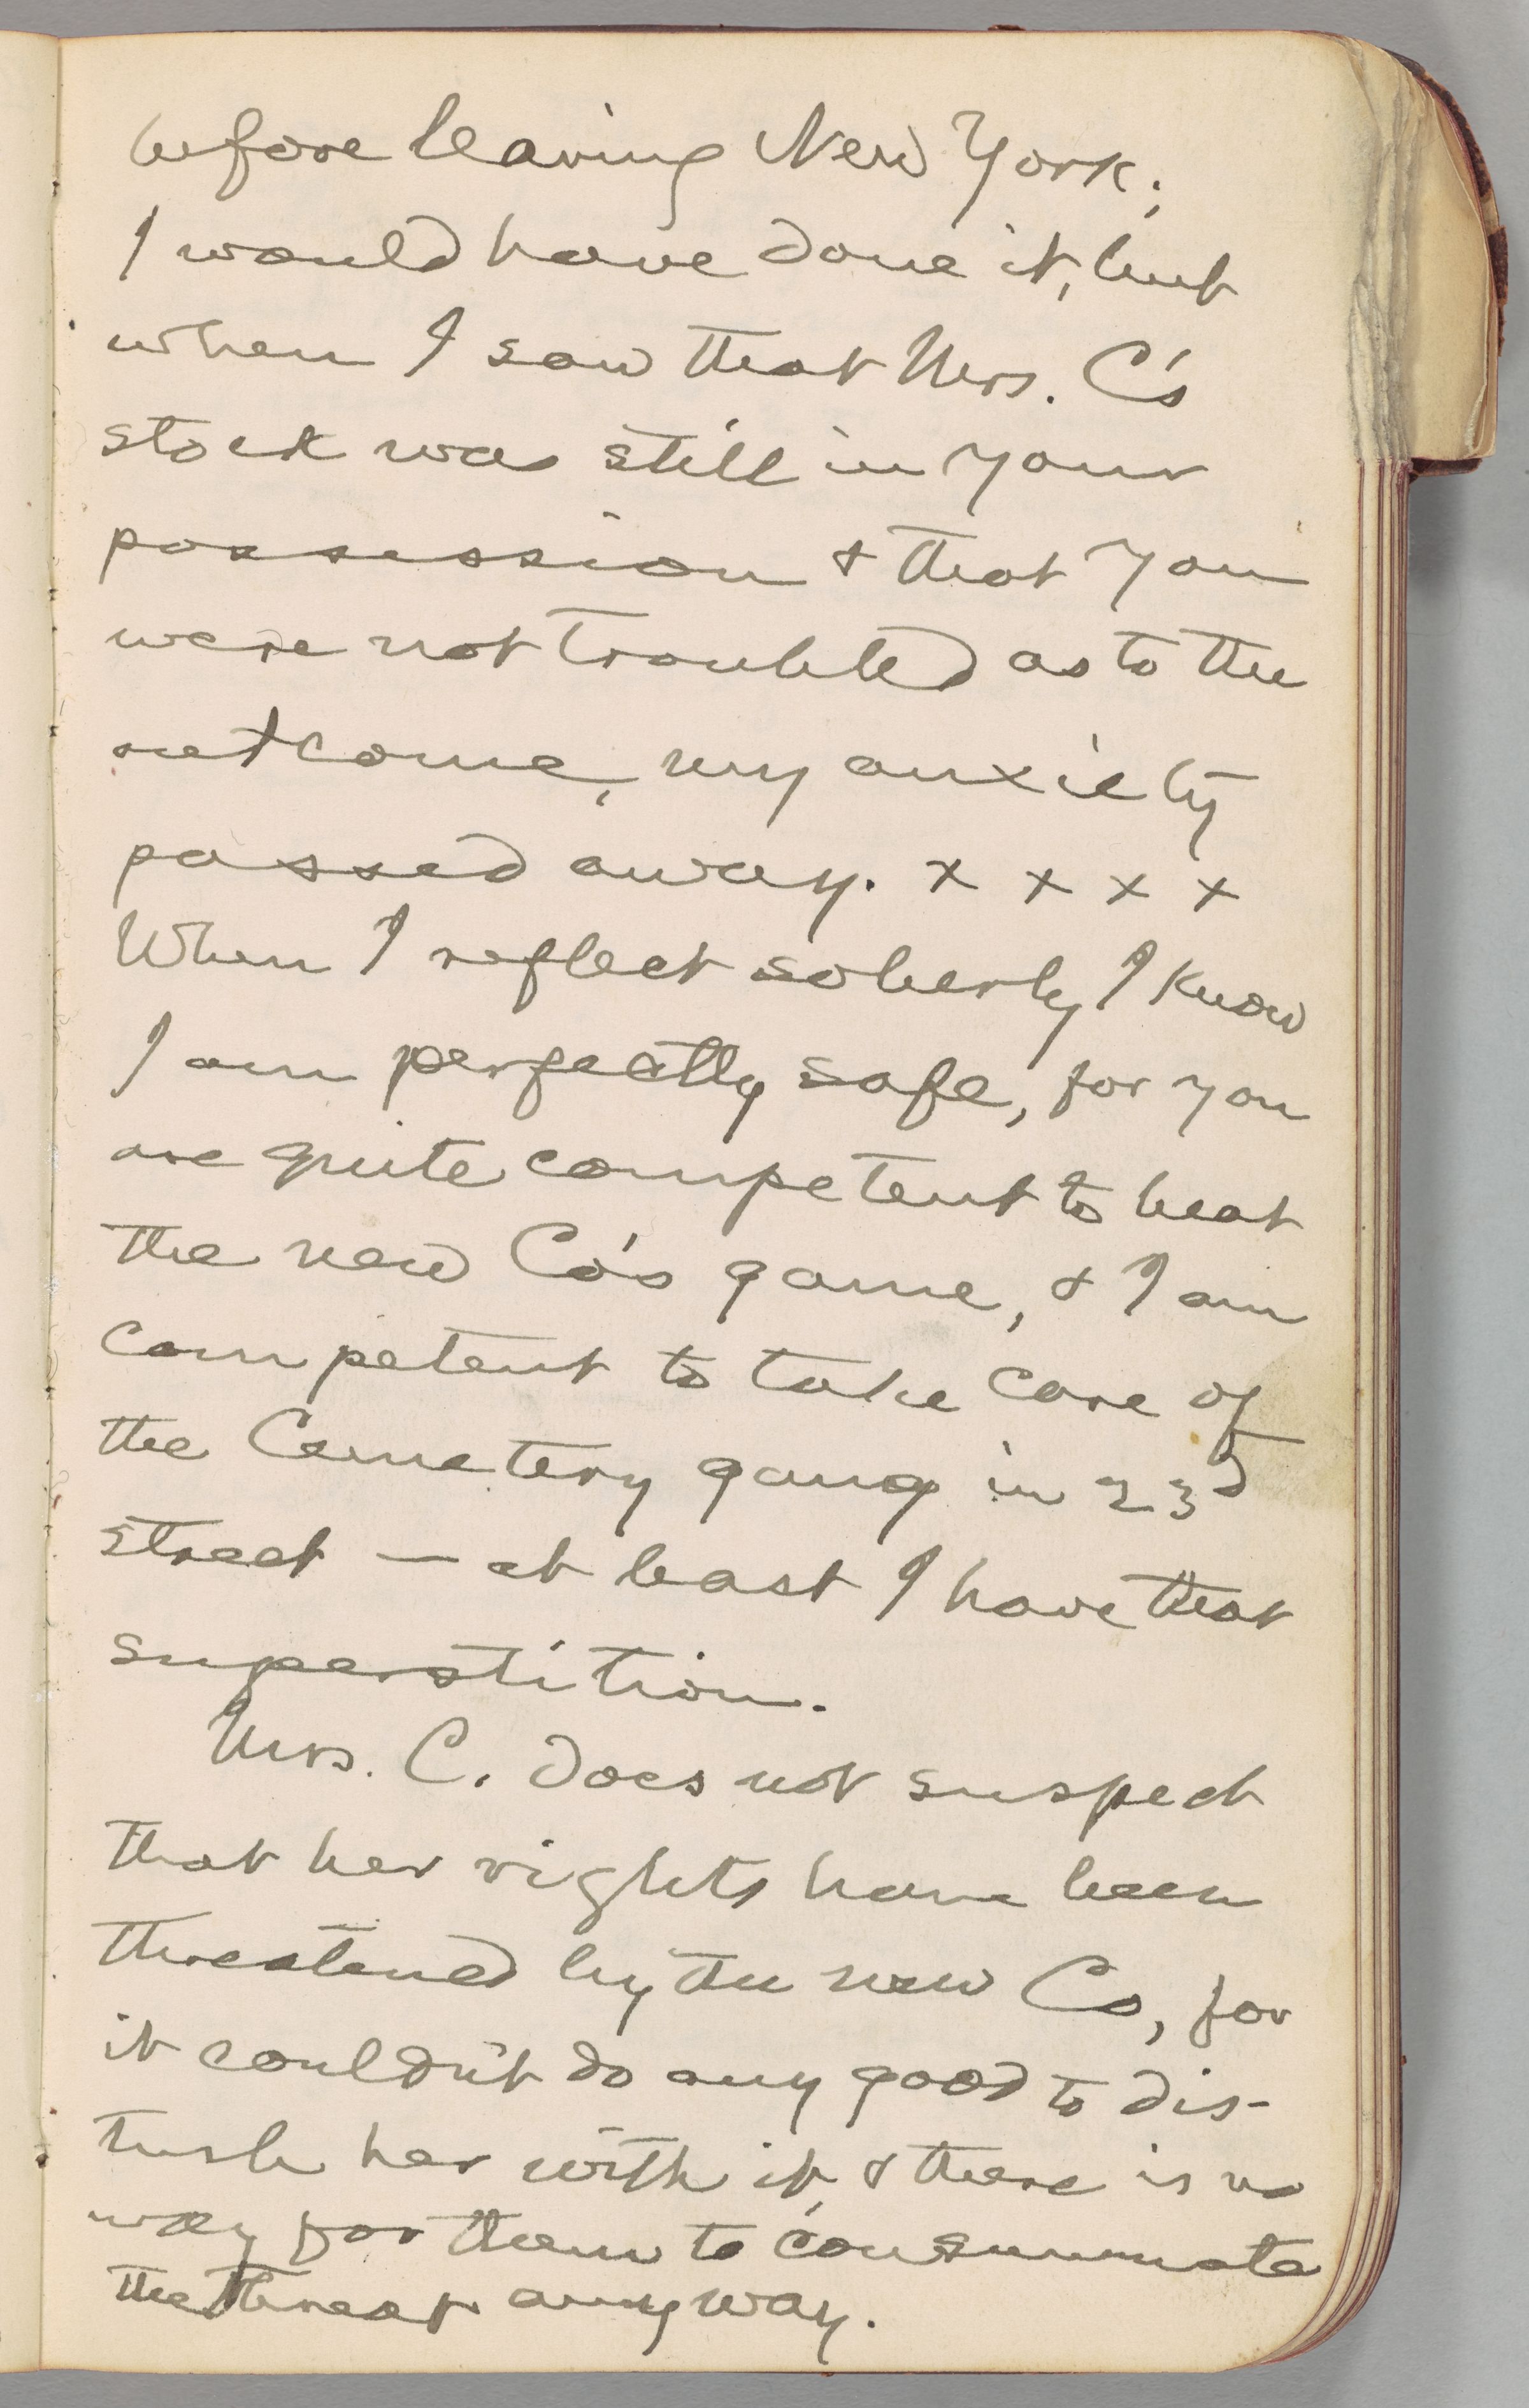 before leaving New York;
I would have done it, but
when I saw that Mrs. C's
stock was still in your
possession & that you
were not troubled as to the
outcome, my anxiety
passed away. x x x x
When I reflect soberly I know
I am perfectly safe, for you
are quite competent to beat
the new Co's game, & I am
competent to take care of
the Cemetery gang in 23d
street — at least I have that
superstition.
Mrs. C. does not suspect
that her rights have been
threatened by the new Co, for
it couldn't do any good to dis-
turb her with it, & there is no
way for them to consummate
the threat anyway.